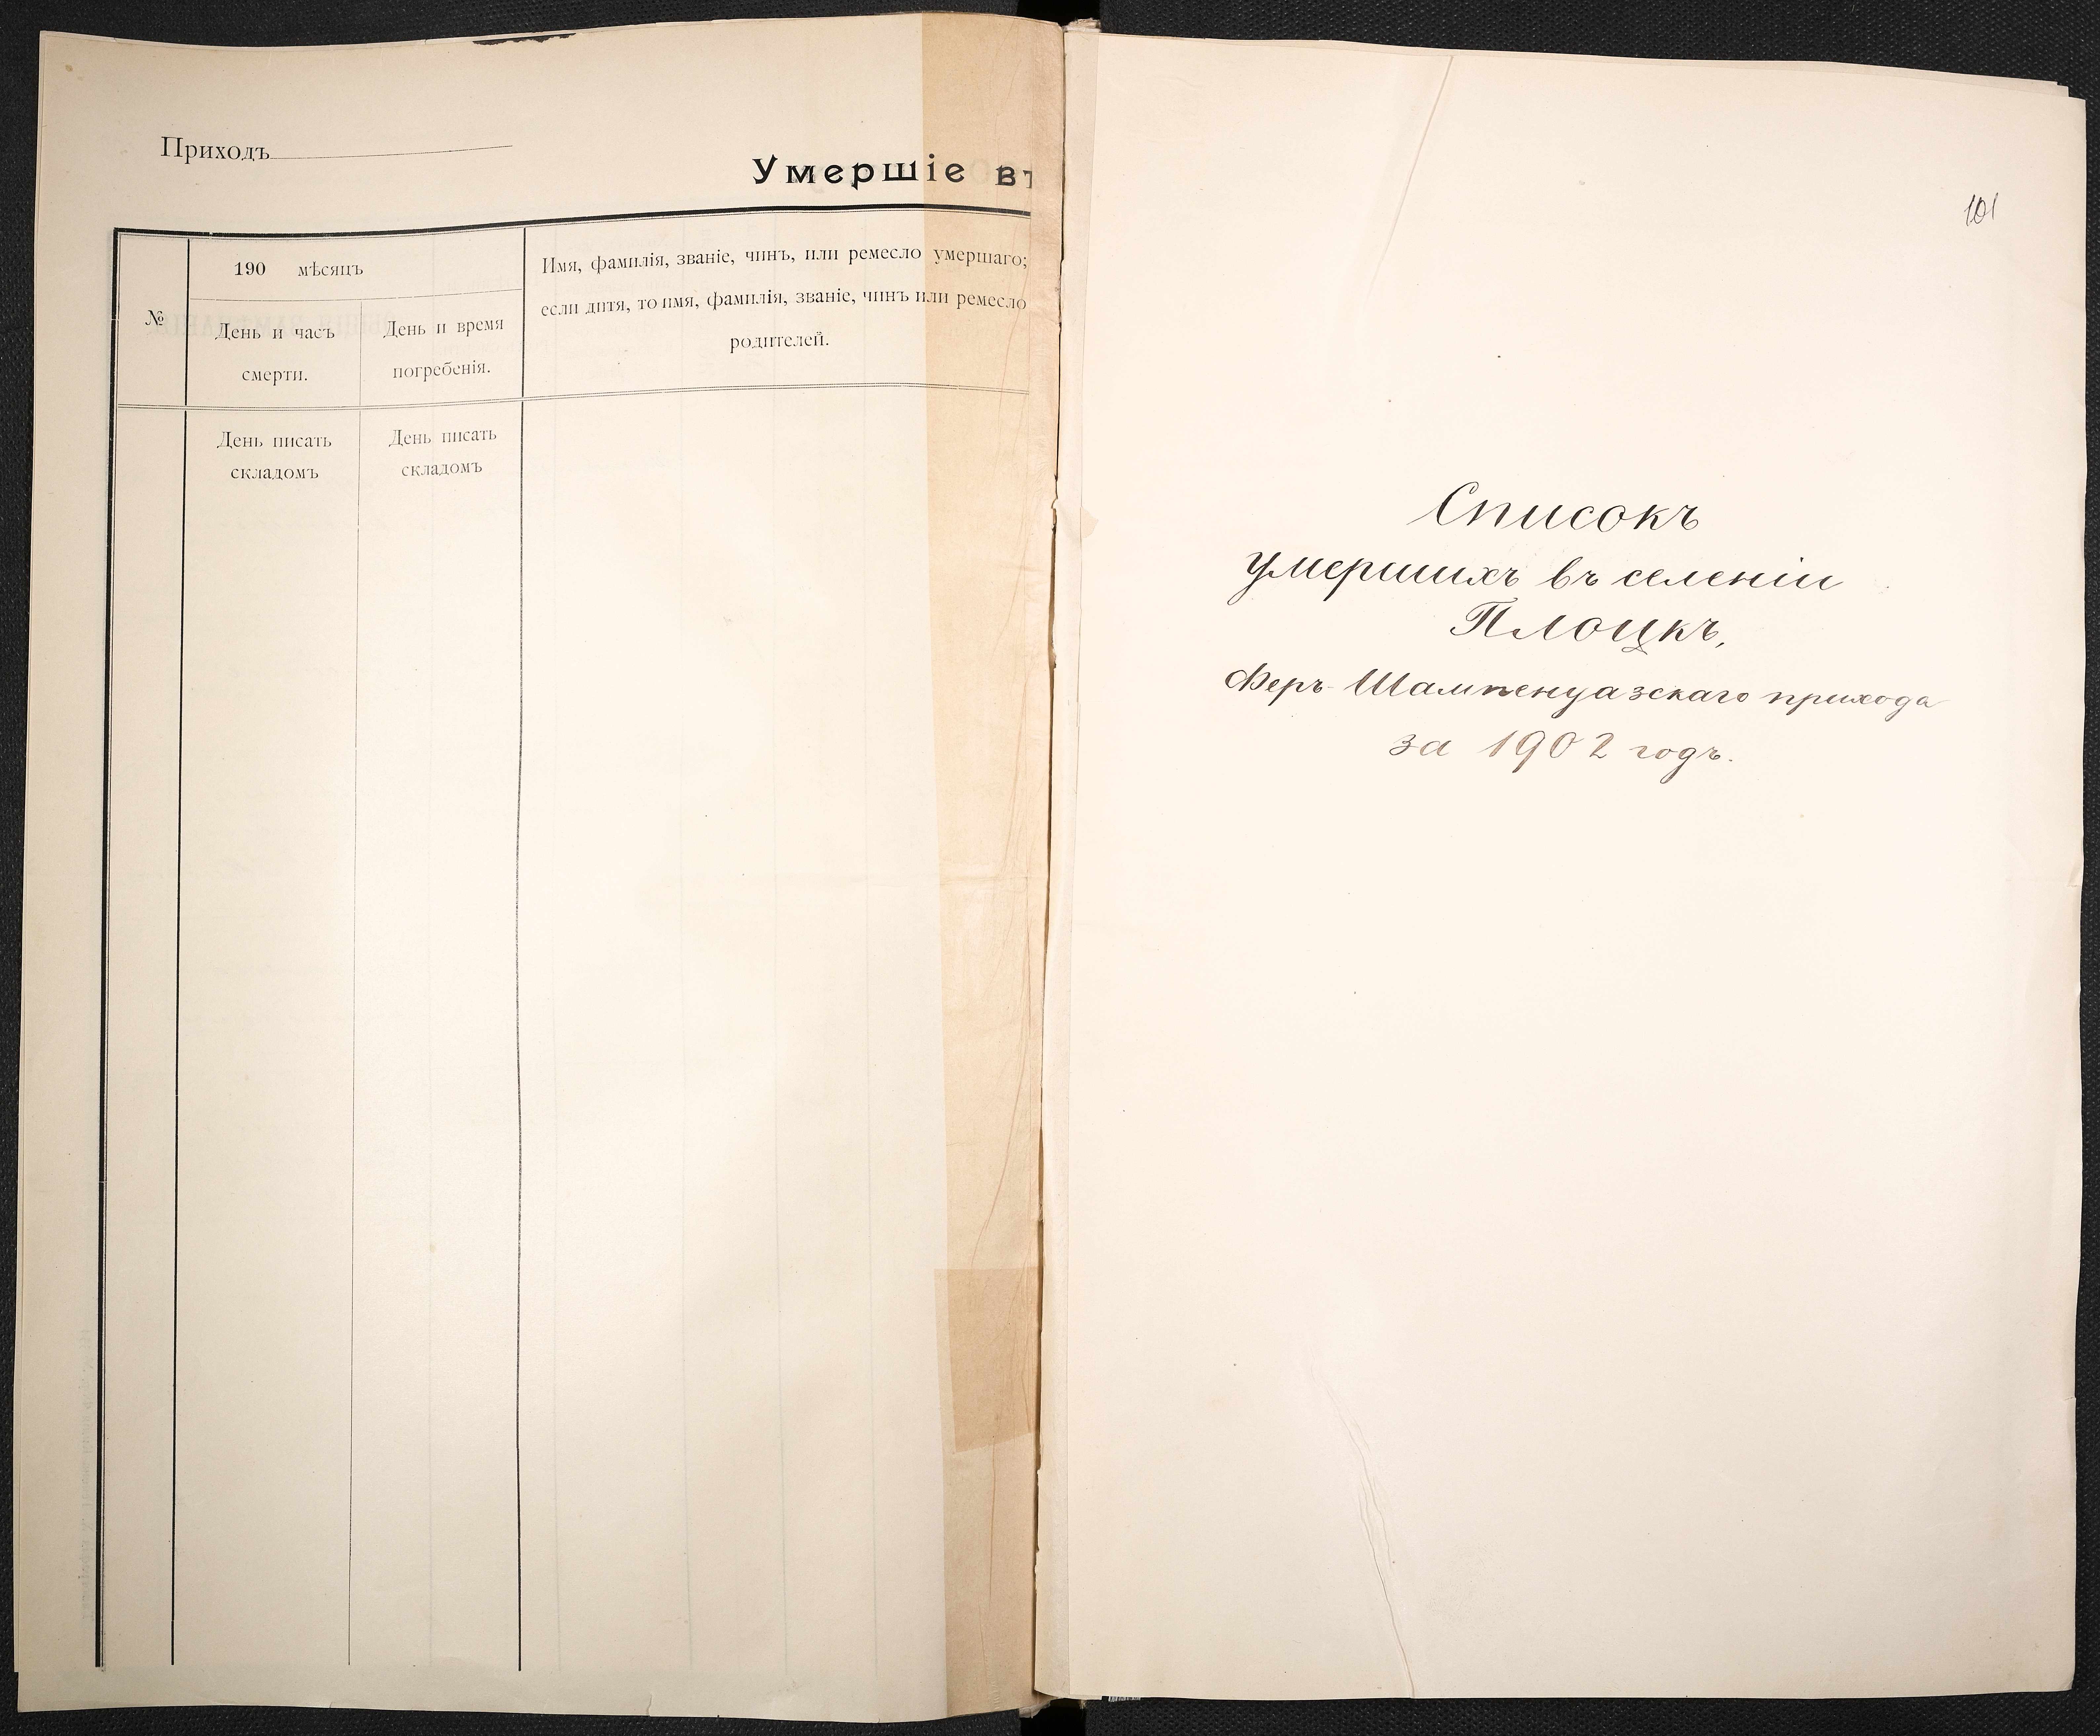 Приходъ
Умершіе въ
№
190 мѣсяцъ
День и часъ
смерти.
День и время
погребенія.
Имя, фамилія, званіе, чинъ, или ремесло умершаго;
если дитя, то имя, фамилія, званіе, чинъ или ремесло
родителей.
День писать
складомъ
День писать
складомъ
101
Списокъ
умершихъ въ селеніи
Плоцкъ,
Феръ-Шампенуазскаго прихода
за 1902 годъ.